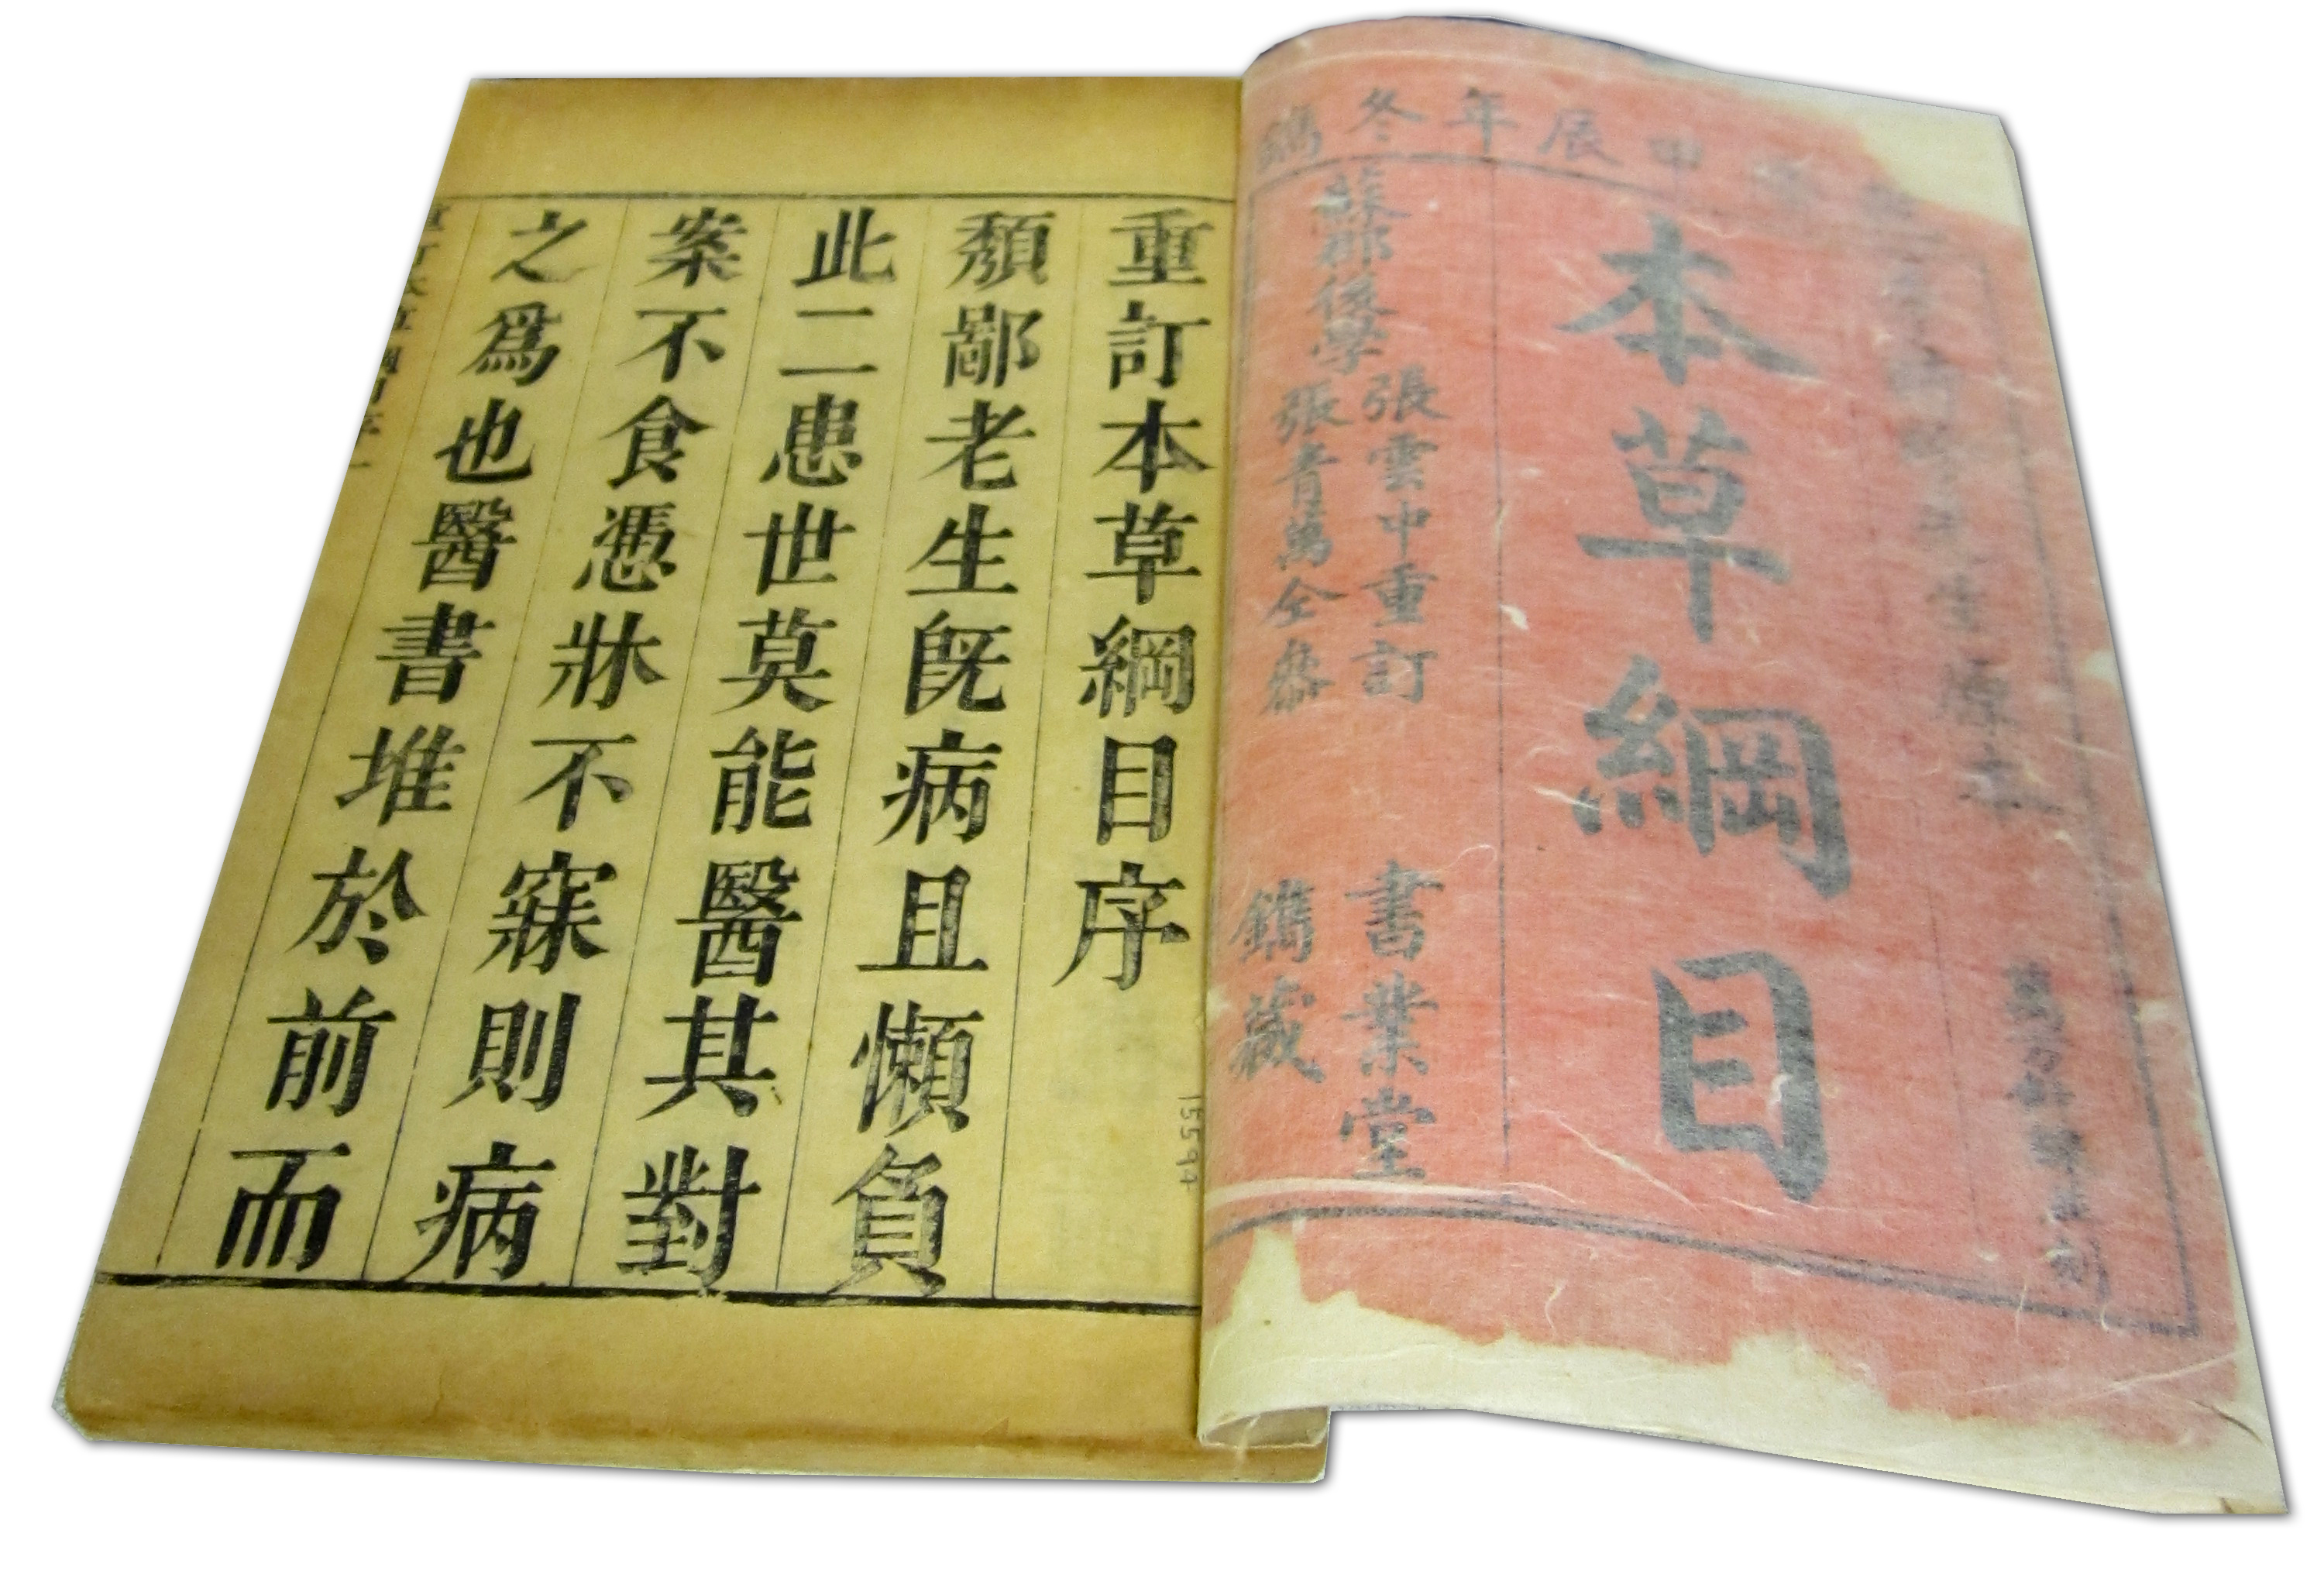 甲辰年冬鐫
先生原本
本草綱目
蘇郡後學
張雲中重訂
張青萬仝叅
書業堂
鐫藏
重訂本草綱目序
頹鄙老生旣病且懶負
此二患世莫能醫其對
案不食憑牀不寐則病
之爲也醫書堆於前而